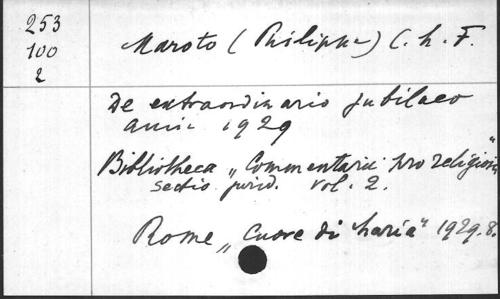 253
100
2
Maroto (Philippe) C. h. F.
De extraordinario jubilaeo
anni 1929
Bibliotheca "Commentarii pro religiosis"
sectio jurid. vol. 2.
Rome "Cuore di Maria" 1929. 8.